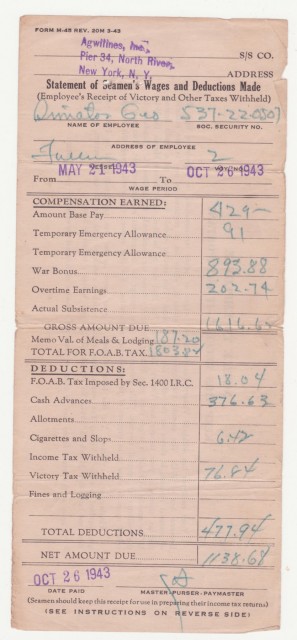 FORM M-43 REV. 20M 3-43
Agwilines, Inc.,
Pier 34, North River,
New York, N, Y, S/S CO.
ADDRESS
Statement of Seamen's Wages and Deductions Made
(Employee's Receipt of Victory and Other Taxes Withheld)
Geo 537-22-0507
NAME OF EMPLOYEE SOC. SECURITY NO.
ADDRESS OF EMPLOYEE
2
From MAY 21 1943 To OCT 26 1943
WAGE PERIOD
COMPENSATION EARNED:
Amount Base Pay 429-
Temporary Emergency Allowance 91
Temporary Emergency Allowance
War Bonus 893.88
Overtime Earnings 202.74
Actual Subsistence
GROSS AMOUNT DUE 1616.62
Memo Val. of Meals & Lodging 187.20
TOTAL FOR F.O.A.B. TAX 1803.82
DEDUCTIONS:
F.O.A.B. Tax Imposed by Sec. 1400 I.R.C. 18.04
Cash Advances 376.63
Allotments
Cigarettes and Slops 6.42
Income Tax Withheld
Victory Tax Withheld 76.84
Fines and Logging
TOTAL DEDUCTIONS 477.94
NET AMOUNT DUE 1138.68
OCT 26 1943
DATE PAID MASTER-PURSER-PAYMASTER
(Seamen should keep this receipt for use in preparing their income tax returns)
(SEE INSTRUCTIONS ON REVERSE SIDE)